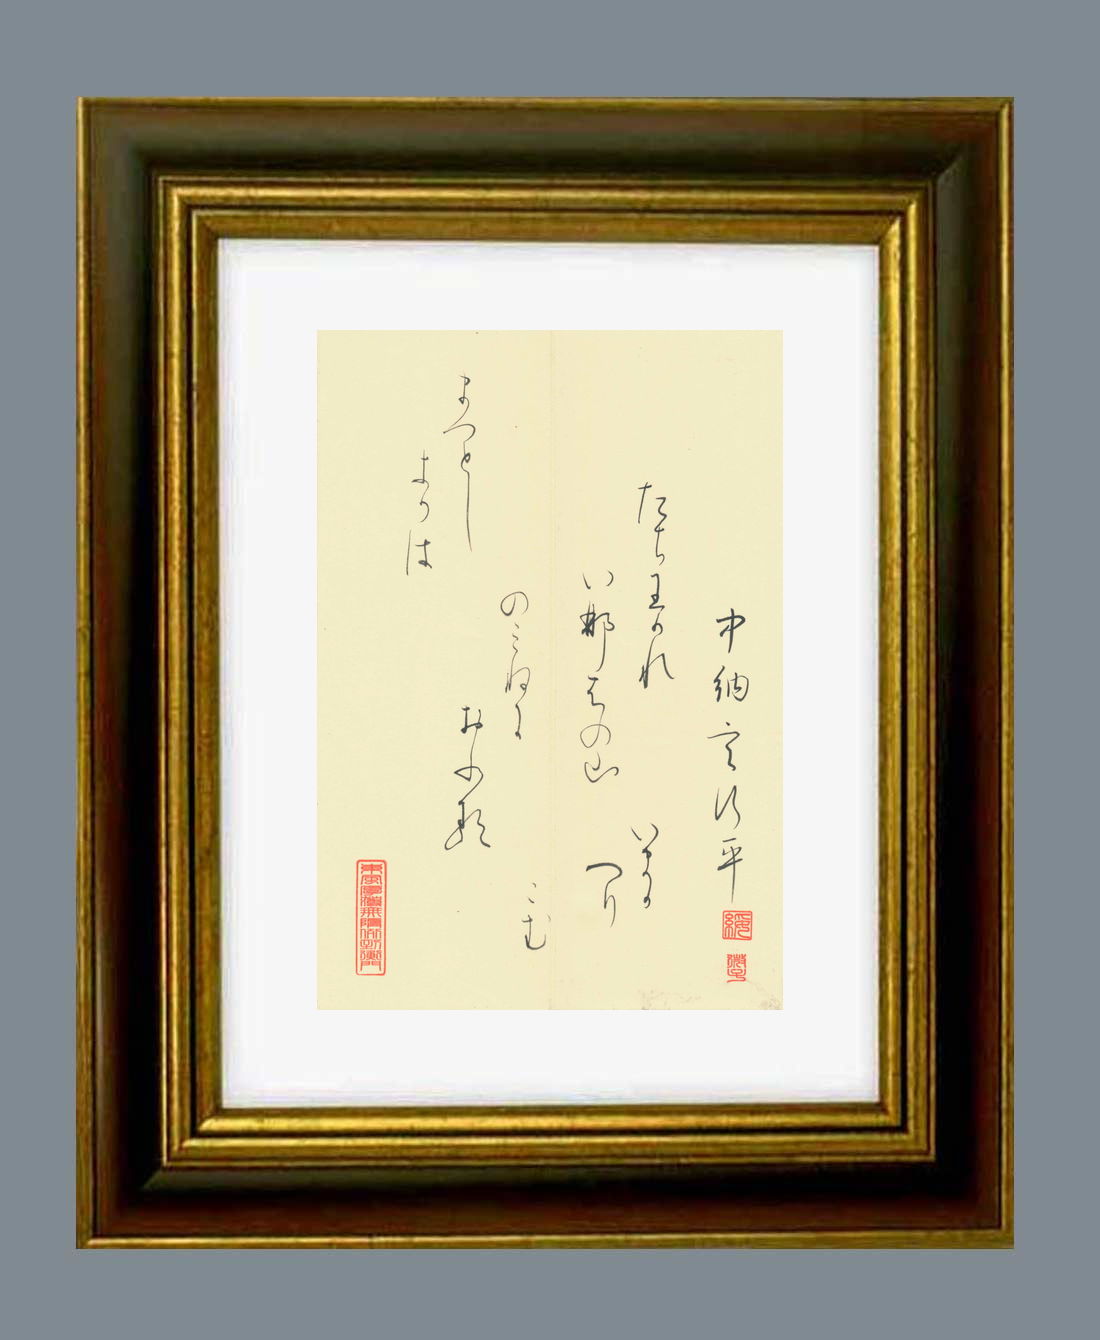 中納言行平
たち王かれ
い那はの山
のみねに
おふる
まつとし
きかは
いまか
へり
こむ